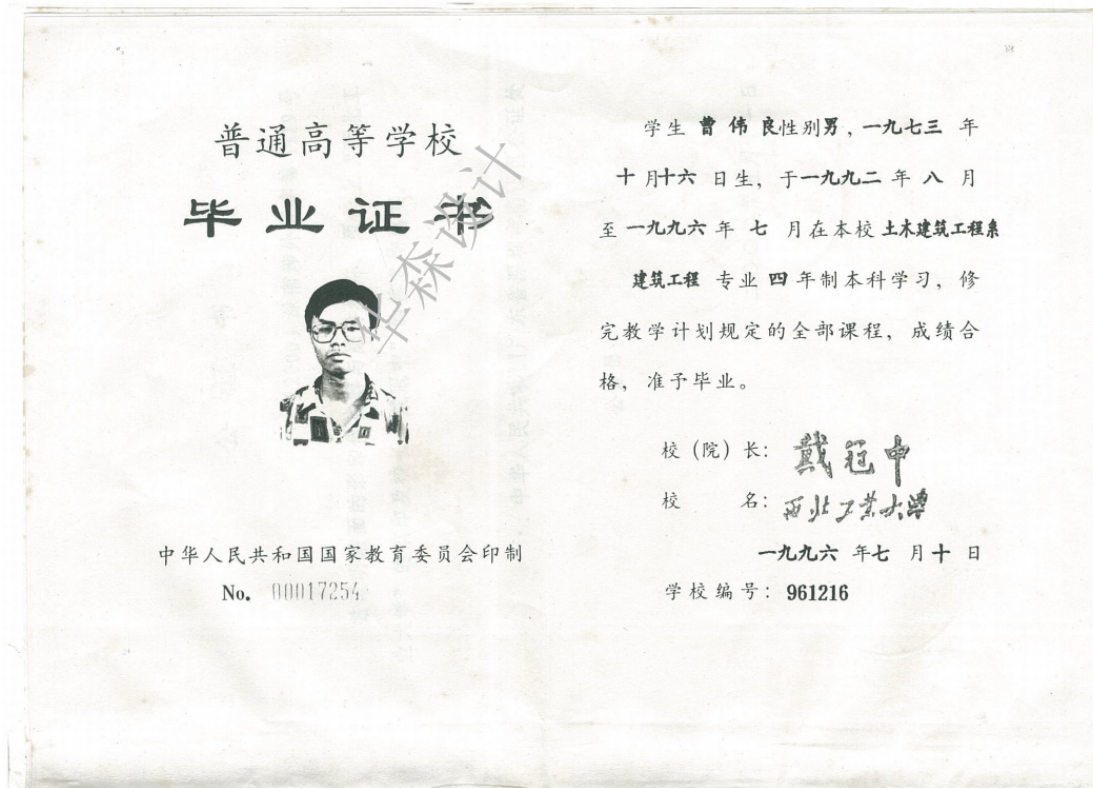 普通高等学校
毕业证书
华森设计
中华人民共和国国家教育委员会印制
No. 00017254
学生 曹伟良 性别男，一九七三 年
十 月十六 日生，于一九九二 年 八 月
至 一九九六 年 七 月在本校 土木建筑工程系
建筑工程 专业 四 年制本科学习，修
完教学计划规定的全部课程，成绩合
格，准予毕业。
校（院）长：戴冠中
校 名：西北工业大学
一九九六 年七 月十 日
学校编号：961216